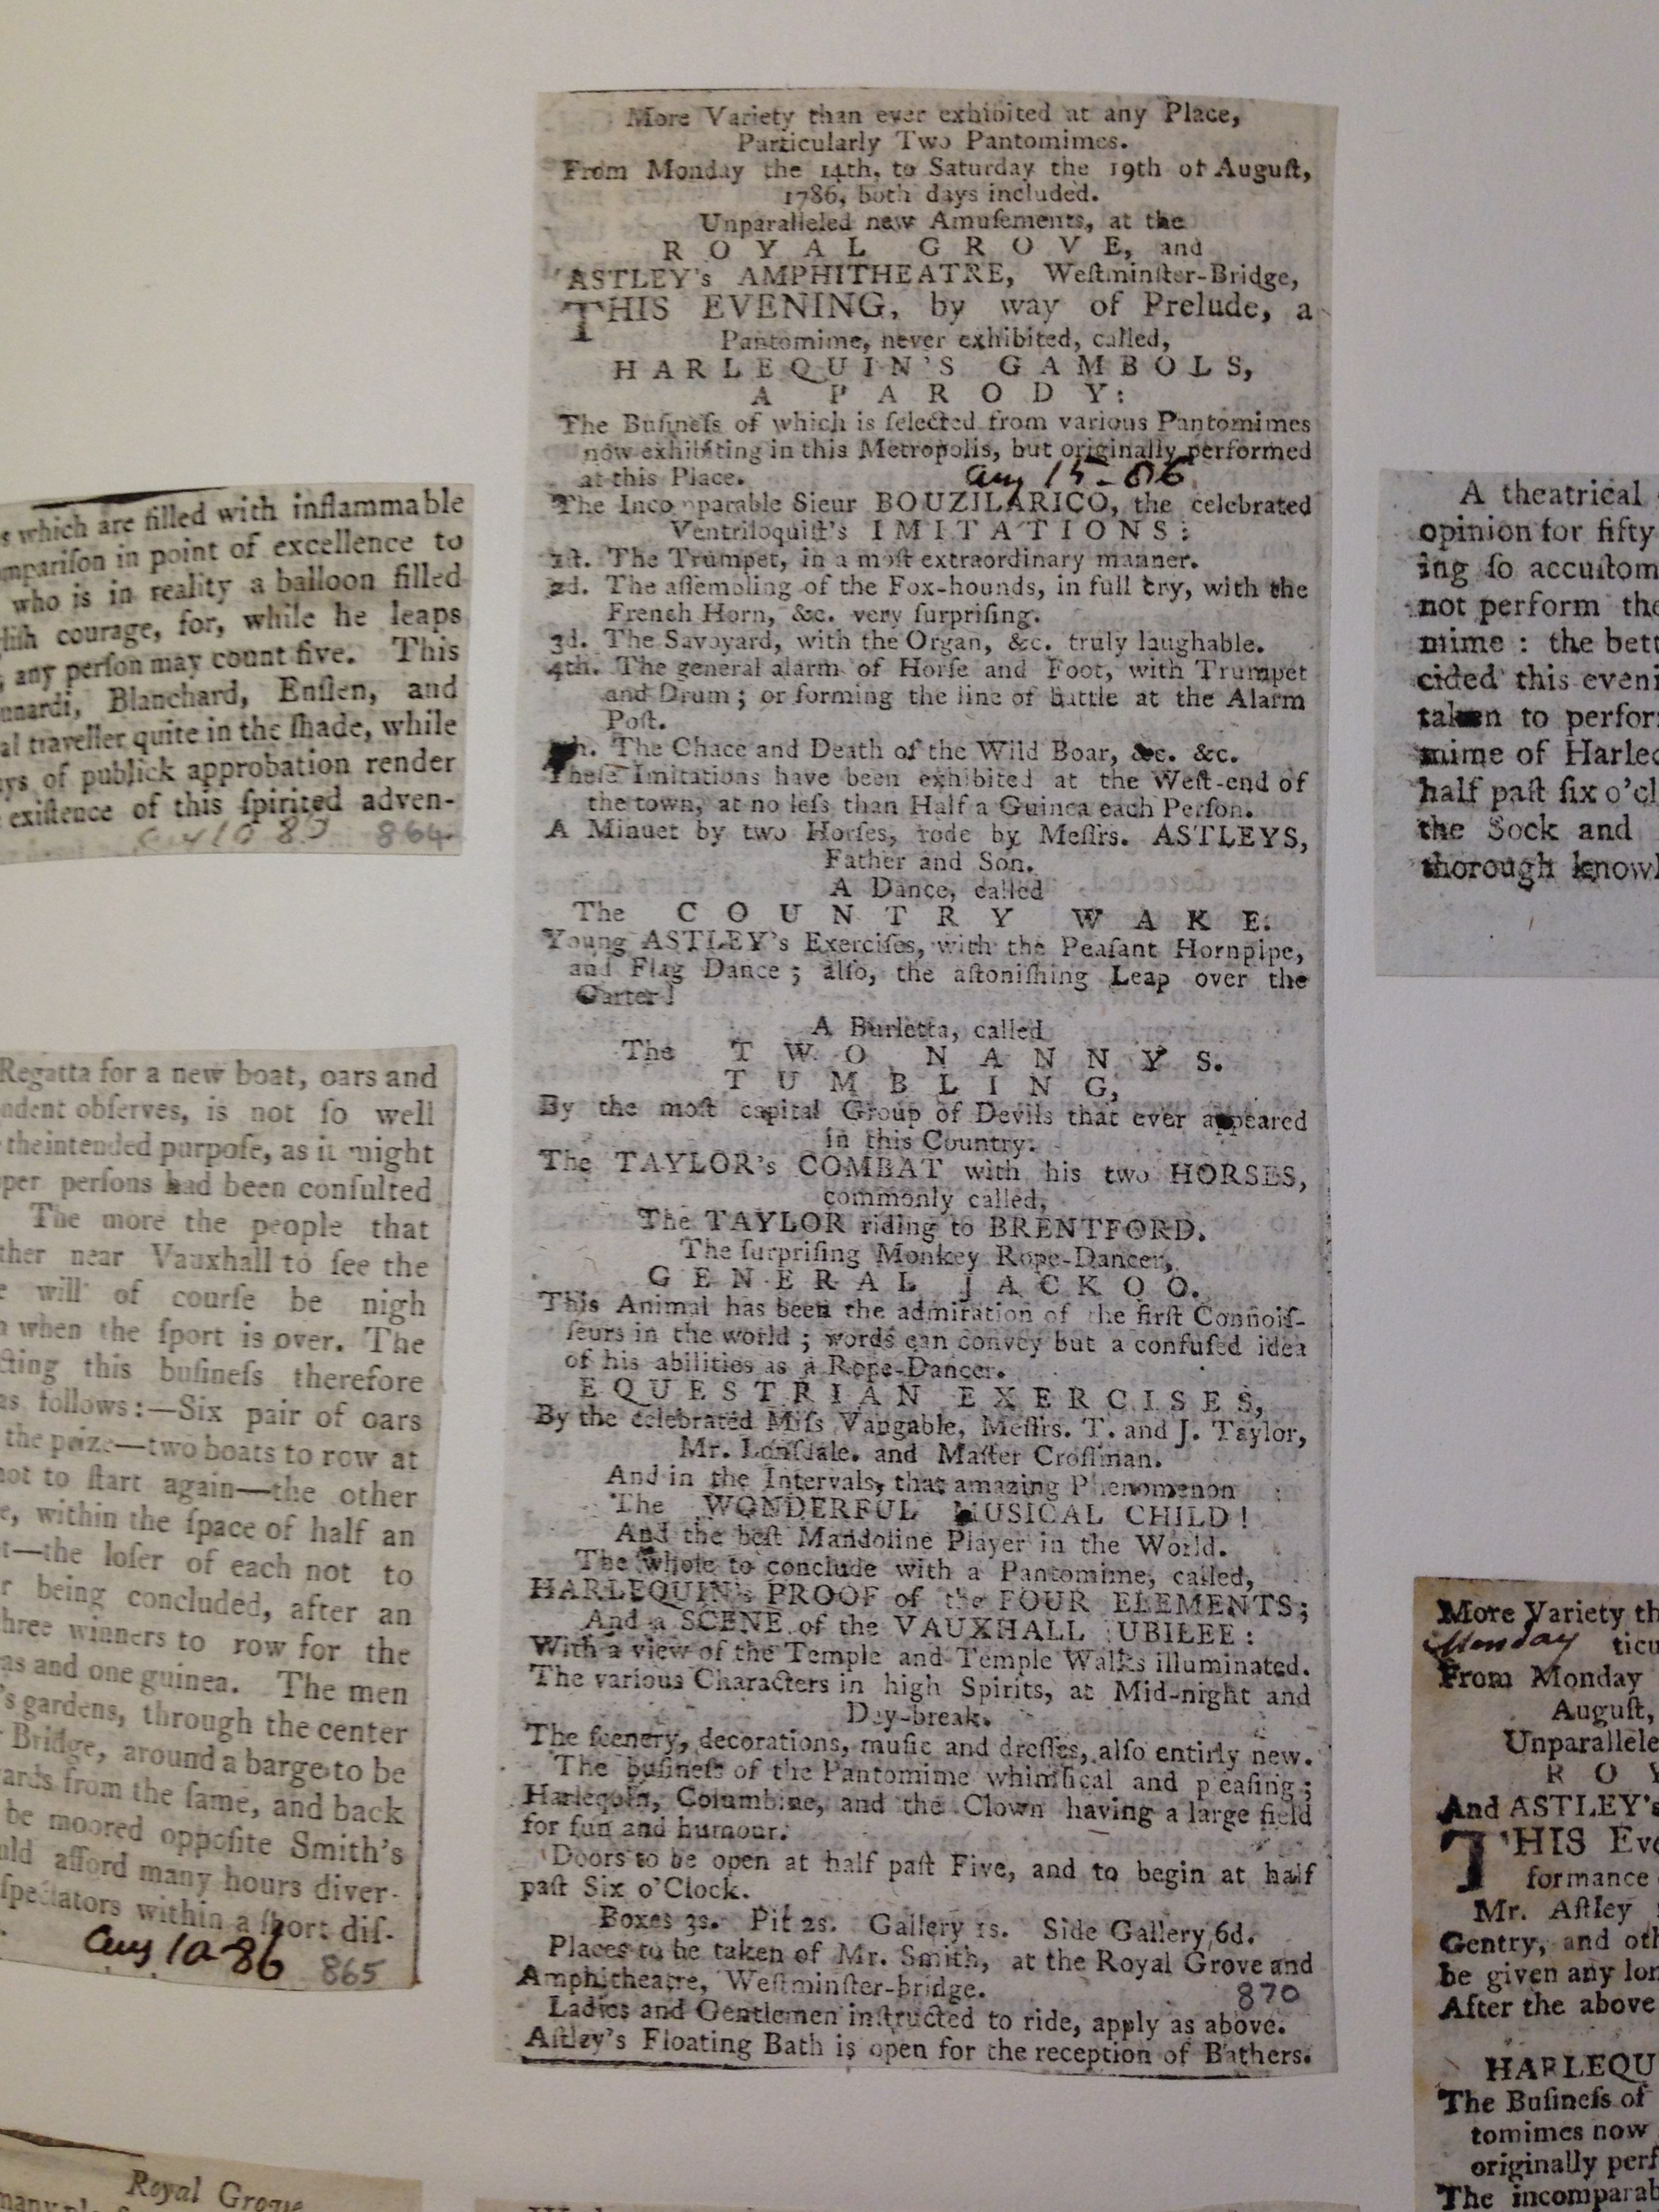 s which are filled with inflammable
mpariſon in point of excellence to
who is in reality a balloon filled
liſh courage, for, while he leaps
, any perſon may count five. This
unardi, Blanchard, Enſlen, and
al traveller quite in the ſhade, while
ys of publick approbation render
exiſtence of this ſpirited adven-
864.
Regatta for a new boat, oars and
ndent obſerves, is not ſo well
theintended purpoſe, as it might
per perſons had been conſulted
The more the people that
ther near Vauxhall to ſee the
e will of courſe be nigh
n when the ſport is over. The
cting this buſineſs therefore
as follows:—Six pair of oars
the prize—two boats to row at
not to ſtart again—the other
e, within the ſpace of half an
t—the loſer of each not to
r being concluded, after an
three winners to row for the
as and one guinea. The men
's gardens, through the center
Bridge, around a barge to be
ards from the ſame, and back
be moored oppoſite Smith's
uld afford many hours diver-
ſpectators within a ſhort diſ-
Aug 10-86 865
Royal Grove
More Variety than ever exhibited at any Place,
Particularly Two Pantomimes.
From Monday the 14th, to Saturday the 19th of Auguſt,
1786, both days included.
Unparalleled new Amuſements, at the
ROYAL GROVE, and
ASTLEY's AMPHITHEATRE, Weſtminſter-Bridge,
THIS EVENING, by way of Prelude, a
Pantomime, never exhibited, called,
HARLEQUIN'S GAMBOLS,
A PARODY:
The Buſineſs of which is ſelected from various Pantomimes
now exhibiting in this Metropolis, but originally performed
at this Place.
Aug 15-86
The Incomparable Sieur BOUZILARICO, the celebrated
Ventriloquiſt's IMITATIONS:
1ſt. The Trumpet, in a moſt extraordinary manner.
2d. The aſſembling of the Fox-hounds, in full cry, with the
French Horn, &c. very ſurpriſing.
3d. The Savoyard, with the Organ, &c. truly laughable.
4th. The general alarm of Horſe and Foot, with Trumpet
and Drum; or forming the line of battle at the Alarm
Poſt.
h. The Chace and Death of the Wild Boar, &c. &c.
Theſe Imitations have been exhibited at the Weſt-end of
the town, at no leſs than Half a Guinea each Perſon.
A Minuet by two Horſes, rode by Meſſrs. ASTLEYS,
Father and Son.
A Dance, called
The COUNTRY WAKE.
Young ASTLEY's Exerciſes, with the Peaſant Hornpipe,
and Flag Dance; alſo, the aſtoniſhing Leap over the
Garter!
A Burletta, called
The TWO NANNYS.
TUMBLING,
By the moſt capital Group of Devils that ever appeared
in this Country.
The TAYLOR's COMBAT with his two HORSES,
commonly called,
The TAYLOR riding to BRENTFORD.
The ſurpriſing Monkey Rope-Dancer,
GENERAL JACKOO.
This Animal has been the admiration of the firſt Connoiſ-
ſeurs in the world; words can convey but a confuſed idea
of his abilities as a Rope-Dancer.
EQUESTRIAN EXERCISES,
By the celebrated Miſs Vangable, Meſſrs. T. and J. Taylor,
Mr. Lonſdale, and Maſter Croſſman.
And in the Intervals, that amazing Phenomenon
The WONDERFUL MUSICAL CHILD!
And the beſt Mandoline Player in the World.
The whole to conclude with a Pantomime, called,
HARLEQUIN's PROOF of the FOUR ELEMENTS;
And a SCENE of the VAUXHALL JUBILEE:
With a view of the Temple and Temple Walks illuminated.
The various Characters in high Spirits, at Mid-night and
Day-break.
The ſcenery, decorations, muſic and dreſſes, alſo entirly new.
The buſineſs of the Pantomime whimſical and pleaſing;
Harlequin, Columbine, and the Clown having a large field
for fun and humour.
Doors to be open at half paſt Five, and to begin at half
paſt Six o'Clock.
Boxes 3s. Pit 2s. Gallery 1s. Side Gallery 6d.
Places to be taken of Mr. Smith, at the Royal Grove and
Amphitheatre, Weſtminſter-bridge.
870
Ladies and Gentlemen inſtructed to ride, apply as above.
Aſtley's Floating Bath is open for the reception of Bathers.
A theatrical
opinion for fifty
ing ſo accuſtom
not perform the
mime: the bett
cided this eveni
taken to perfor
mime of Harleq
half paſt ſix o'cl
the Sock and
thorough knowl
More Variety th
Monday ticu
From Monday
Auguſt,
Unparallele
ROY
And ASTLEY's
THIS Eve
formance
Mr. Aſtley
Gentry, and oth
be given any lon
After the above
HARLEQU
The Buſineſs of
tomimes now
originally perf
The incomparab